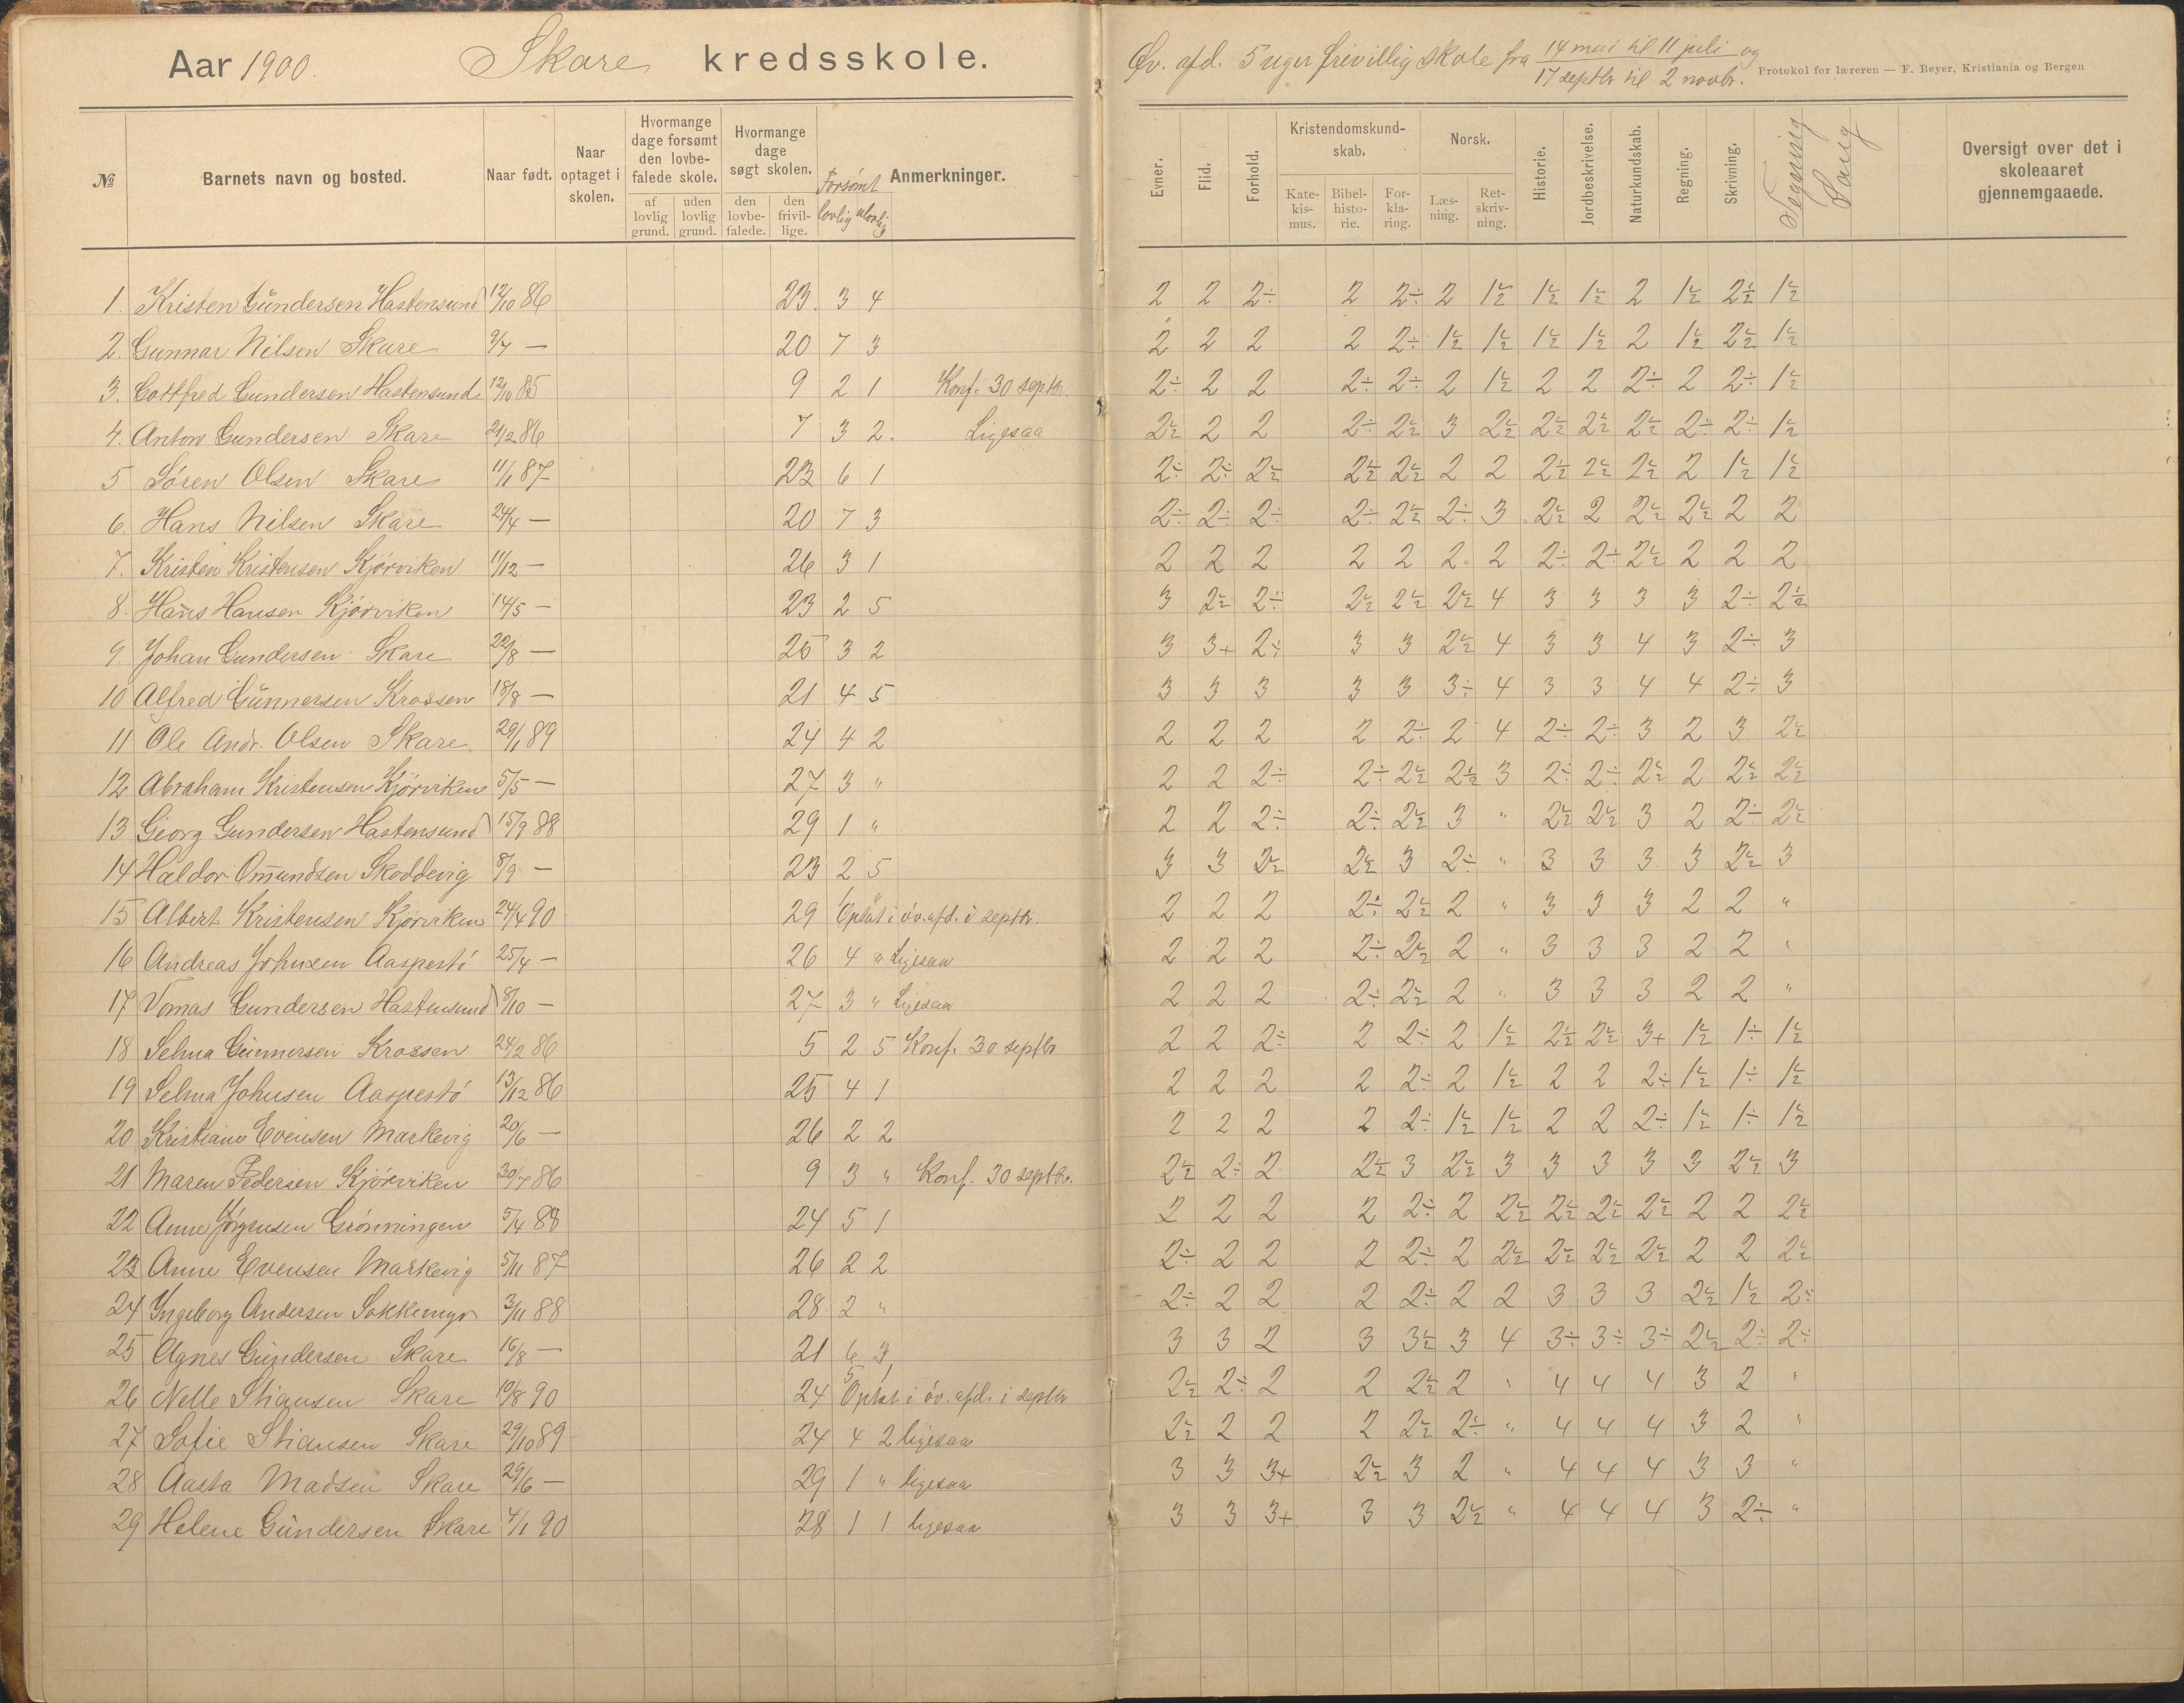 Aar 1900. Skare kredsskole.
Øv. afd. 5 uger frivillig skole fra 14 mai til 11 juli og
17 septbr til 2 novbr.
Protokol for læreren — F. Beyer, Kristiania og Bergen
№ Barnets navn og bosted. Naar født. Naar optaget i skolen. Hvormange dage forsømt den lovbefalede skole. af lovlig grund. uden lovlig grund. Hvormange dage søgt skolen. den lovbefalede. den frivillige. Forsømt lovlig ulovlig Anmerkninger.
Evner. Flid. Forhold. Kristendomskundskab. Katekismus. Bibelhistorie. Forklaring. Norsk. Læsning. Retskrivning. Historie. Jordbeskrivelse. Naturkundskab. Regning. Skrivning. Tegning Sang Oversigt over det i skoleaaret gjennemgaaede.
1. Kristen Gundersen Hastensund 12/10 86 23. 3 4 2 2 2÷ 2 2÷ 2 1½ 1½ 1½ 2 1½ 2½ 1½
2. Gunnar Nilsen Skare 9/4 — 20 7 3 2 2 2 2 2÷ 1½ 1½ 1½ 1½ 2 1½ 2½ 1½
3. Gottfred Gundersen Hastensund 12/10 85 9 2 1 Konf. 30 septbr. 2÷ 2 2 2÷ 2÷ 2 1½ 2 2 2÷ 2 2÷ 1½
4. Anton Gundersen Skare 21/2 86 7 3 2. Ligesaa 2½ 2 2 2÷ 2½ 3 2½ 2½ 2½ 2½ 2÷ 2÷ 1½
5 Søren Olsen Skare 11/1 87 23 6 1 2÷ 2÷ 2½ 2½ 2½ 2 2 2½ 2½ 2½ 2 1½ 1½
6. Hans Nilsen Skare 24/4 — 20 7 3 2÷ 2÷ 2÷ 2÷ 2½ 2÷ 3 2½ 2 2½ 2½ 2 2
7. Kristen Kristensen Kjørviken 11/12 — 26 3 1 2 2 2 2 2 2 2 2÷ 2÷ 2½ 2 2 2
8. Hans Hansen Kjørviken 14/5 — 23 2 5 3 2½ 2÷ 2½ 2½ 2½ 4 3 3 3 3 2÷ 2½
9. Johan Gundersen Skare 22/8 — 25 3 2 3 3+ 2÷ 3 3 2½ 4 3 3 4 3 2÷ 3
10 Alfred Gunnersen Krossen 18/8 — 21 4 5 3 3 3 3 3 3÷ 4 3 3 4 4 2÷ 3
11 Ole Andr. Olsen Skare 29/1 89 24 4 2 2 2 2 2 2÷ 2 4 2÷ 2÷ 3 2 3 2½
12 Abraham Kristensen Kjørviken 5/5 — 27 3 " 2 2 2÷ 2÷ 2½ 2½ 3 2÷ 2÷ 2½ 2 2½ 2½
13 Georg Gundersen Hastensund 15/9 88 29 1 " 2 2 2÷ 2÷ 2½ 3 " 2½ 2½ 3 2 2÷ 2½
14 Haldor Omundsen Skoddevig 8/9 — 23 2 5 3 3 2½ 2½ 3 2÷ " 3 3 3 3 2½ 3
15 Albert Kristensen Kjørviken 24/4 90 29 1 " Optat i øv. afd. i septbr. 2 2 2 2÷ 2½ 2 " 3 3 3 2 2 "
16 Andreas Johnsen Aaspestø 25/4 — 26 4 " Ligesaa 2 2 2 2÷ 2½ 2 " 3 3 3 2 2 "
17 Tomas Gundersen Hastensund 8/10 — 27 3 " Ligesaa 2 2 2 2÷ 2½ 2 " 3 3 3 2 2 "
18 Selma Gunnersen Krossen 24/2 86 5 2 5 Konf. 30 septbr 2 2 2÷ 2 2÷ 2 1½ 2½ 2½ 3+ 1½ 1÷ 1½
19 Selma Johnsen Aaspestø 13/12 86 25 4 1 2 2 2 2 2÷ 2 1½ 2 2 2÷ 1½ 1÷ 1½
20 Kristiane Evensen Markevig 20/6 — 26 2 2 2 2 2 2 2÷ 1½ 1½ 2 2 2÷ 1½ 1÷ 1½
21 Maren Pedersen Kjørviken 30/7 86 9 3 " Konf. 30 septbr. 2½ 2÷ 2 2½ 3 2½ 3 3 3 3 3 2½ 3
22 Anne Jørgensen Grønningen 5/4 88 24 5 1 2 2 2 2 2÷ 2 2½ 2½ 2½ 2½ 2 2 2½
23 Anne Evensen Markevig 5/11 87 26 2 2 2÷ 2 2 2 2÷ 2 2½ 2½ 2½ 2½ 2 2 2½
24 Ingeborg Andersen Sokkemyr 3/11 88 28 2 " 2÷ 2 2 2 2÷ 2 2 3 3 3 2½ 1½ 2÷
25 Agnes Gundersen Skare 16/8 — 21 6 3 3 3 2 3 3½ 3 4 3÷ 3÷ 3÷ 2½ 2÷ 2÷
26 Nelle Stiansen Skare 10/8 90 24 5 1 Optat i øv. afd. i septbr 2½ 2÷ 2 2 2½ 2 " 4 4 4 3 2 "
27 Sofie Stiansen Skare 29/10 89 24 4 2 ligesaa 2½ 2 2 2 2½ 2÷ " 4 4 4 3 2 "
28 Aasta Madsen Skare 29/6 — 29 1 " ligesaa 3 3 3+ 2½ 3 2 " 4 4 4 3 3 "
29 Helene Gundersen Skare 4/1 90 28 1 1 ligesaa 3 3 3+ 3 3 2½ " 4 4 4 3 2÷ "